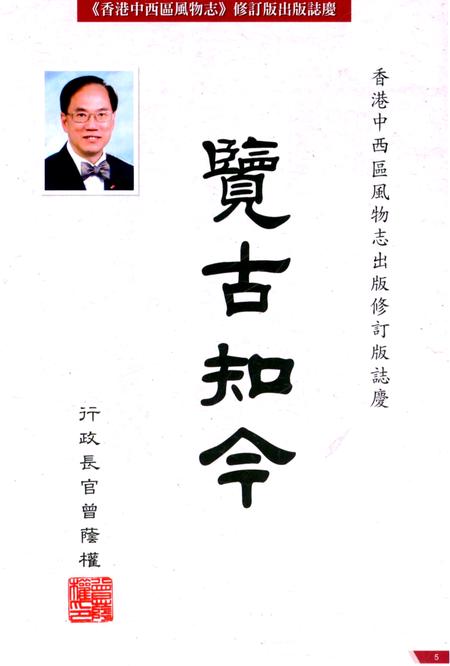 《香港中西區風物志》修訂版出版誌慶
香港中西區風物志出版修訂版誌慶
覽古知今
行政長官曾蔭權
曾蔭權印
5